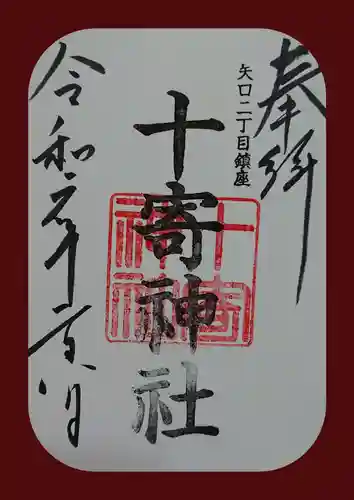 奉拝
矢口二丁目鎮座
十寄神社
十寄
神社
令和元年